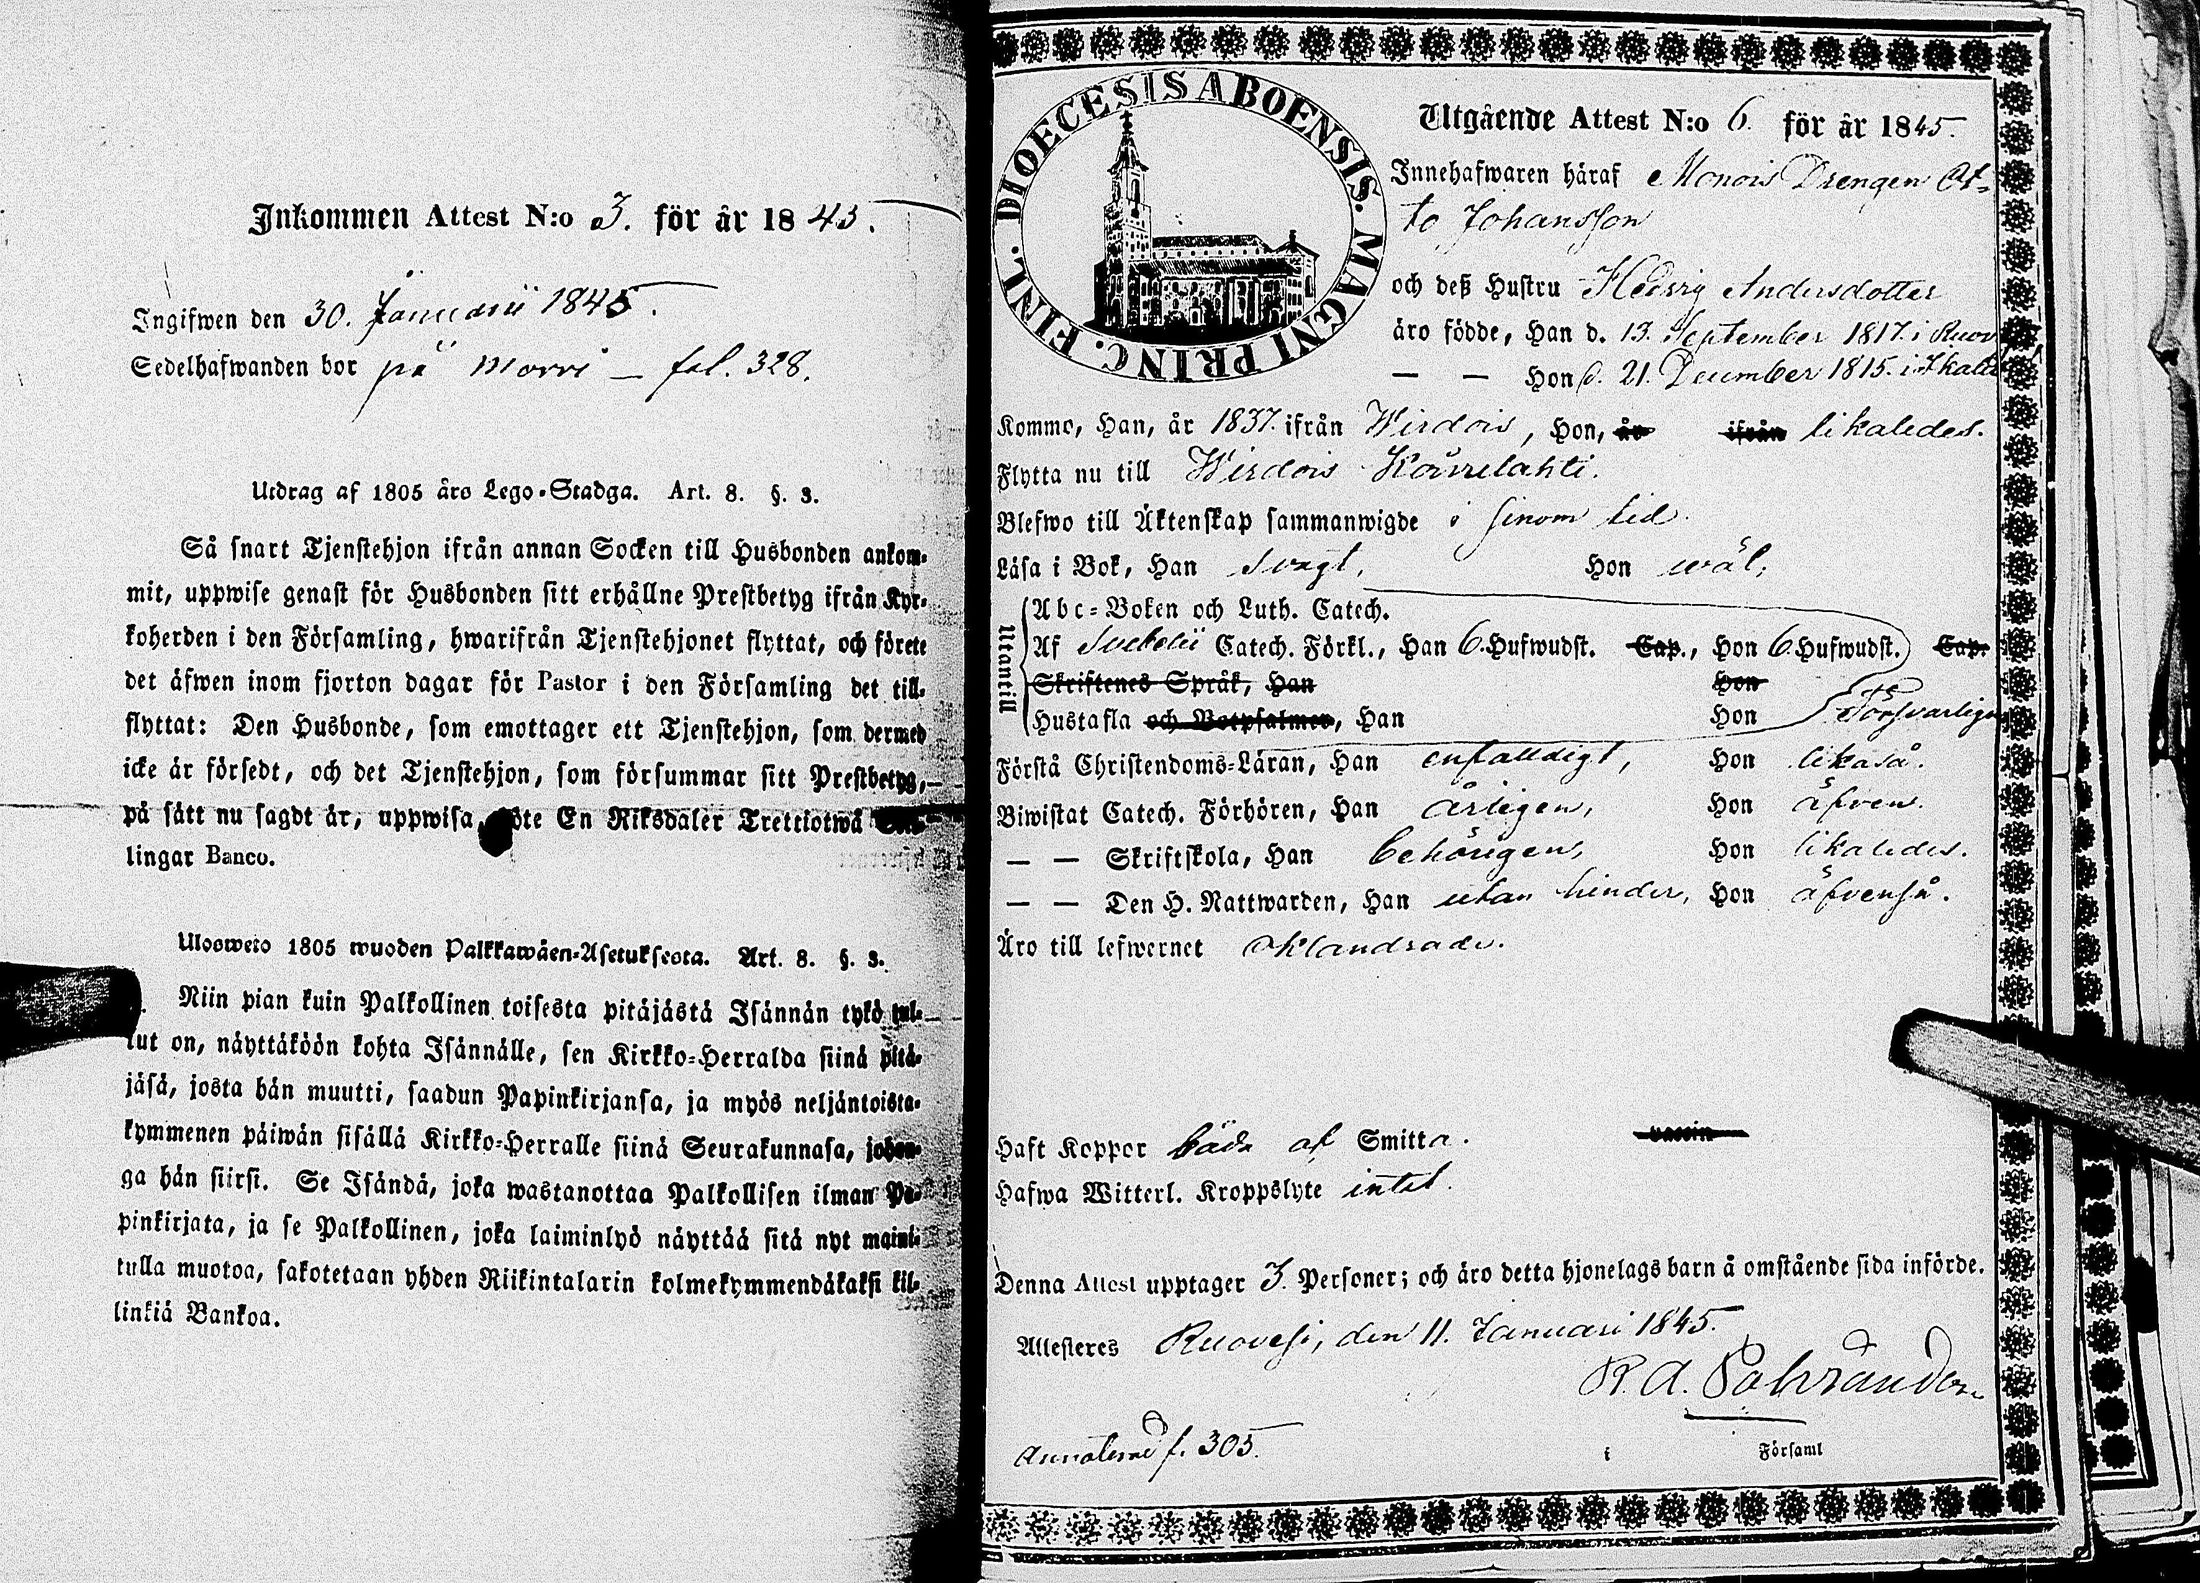 Inkommen Attest N:o 3. för år 1845.
Ingifwen den 30. Januarii 1845.
Sedelhafwanden bor på Morri — fol. 328.
Utdrag af 1805 års Lego-Stadga. Art. 8. §. 3.
Så snart Tjenstehjon ifrån annan Socken till Husbonden ankom-
mit, uppwise genast för Husbonden sitt erhållne Prestbetyg ifrån Kyr-
koherden i den Församling, hwarifrån Tjenstehjonet flyttat, och förete
det äfwen inom fjorton dagar för Pastor i den Församling det till-
flyttat: Den Husbonde, som emottager ett Tjenstehjon, som dermed
icke är försedt, och det Tjenstehjon, som försummar sitt Prestbetyg,
på sätt nu sagdt är, uppwisa, En Riksdaler Trettiotwå
lingar Banco.
Ulosweto 1805 wuoden Palkkawäen-Asetuksesta. Art. 8. §. 3.
Niin pian kuin Palkollinen toisesta pitäjästä Isännän tykö tul-
lut on, näyttäköön kohta Isännälle, sen Kirkko-Herralda siinä pitä-
jäsä, josta hän muutti, saadun Papinkirjansa, ja myös neljäntoista-
kymmenen päiwän sisällä Kirkko-Herralle siinä Seurakunnasa, johon-
ga hän siirsi. Se Isändä, joka wastanottaa Palkollisen ilman Pa-
pinkirjata, ja se Palkollinen, joka laiminlyö näyttää sitä nyt mainit-
tulla muotoa, sakotetaan yhden Riikintalarin kolmekymmendäkaksi kil-
linkiä Bankoa.
DIOECESIS ABOENSIS. MAGNI PRINC. FINL.
Utgående Attest N:o 6. för år 1845.
Innehafwaren häraf Monois Drengen Ot-
to Johansson
och deß Hustru Hedvig Andersdotter
äro födde, Han d. 13. September 1817. i Ruov
— — Hon d. 21. December 1815. i Ikalis
Komme, Han, år 1837. ifrån Wirdois, Hon, år ifrån likaledes.
Flytta nu till Wirdois Kourelahti.
Blefwo till Äktenskap sammanwigde i sinom tid.
Läsa i Bok, Han svagt, Hon wäl,
Utantill
Abc-Boken och Luth. Catech.
Af Svebelii Catech. Förkl., Han 6. Hufwudst. Cap., Hon 6. Hufwudst. Cap.
Skriftenes Språk, Han Hon
Hustafla och Botpsalmer, Han Hon Försvarligen
Förstå Christendoms-Läran, Han enfalldigt, Hon likaså.
Biwistat Catech. Förhören, Han årligen, Hon äfven.
— — Skriftskola, Han behörigen, Hon likaledes.
— — Den H. Nattwarden, Han utan hinder, Hon äfvenså.
Äro till lefwernet oklandrade.
Haft Koppor båda af Smitta. vaccin
Hafwa Witterl. Kroppslyte intet.
Denna Attest upptager 3. Personer; och äro detta hjonelags barn å omstående sida införde.
Attesteres Ruovesi, den 11. Januari 1845.
R. A.
f. 305.
i Församl